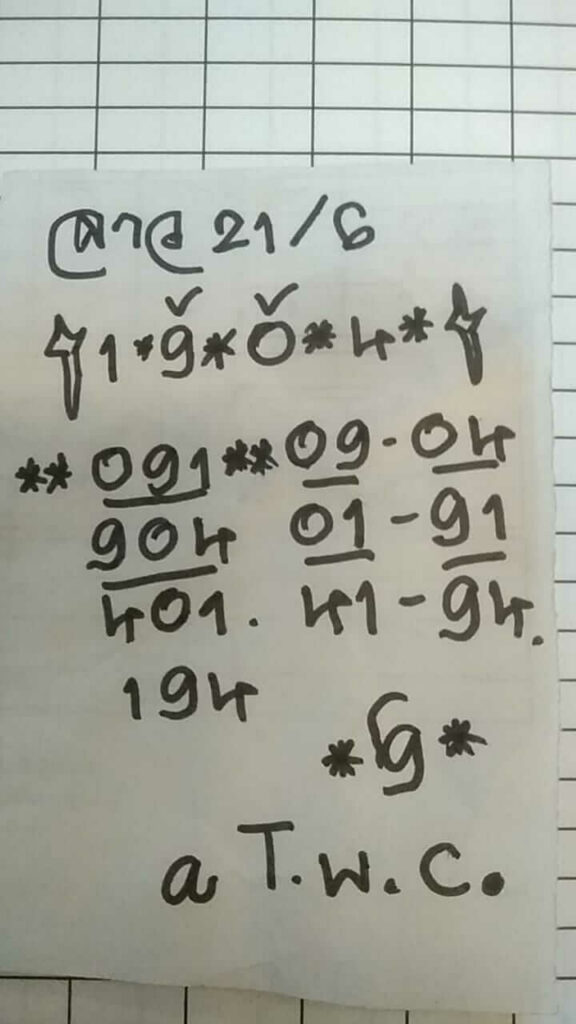 ลาว 21/6
1*9*0*4*
** 091 ** 09-04
904 01-91
401. 41-94.
194
* *
a T.w.c.